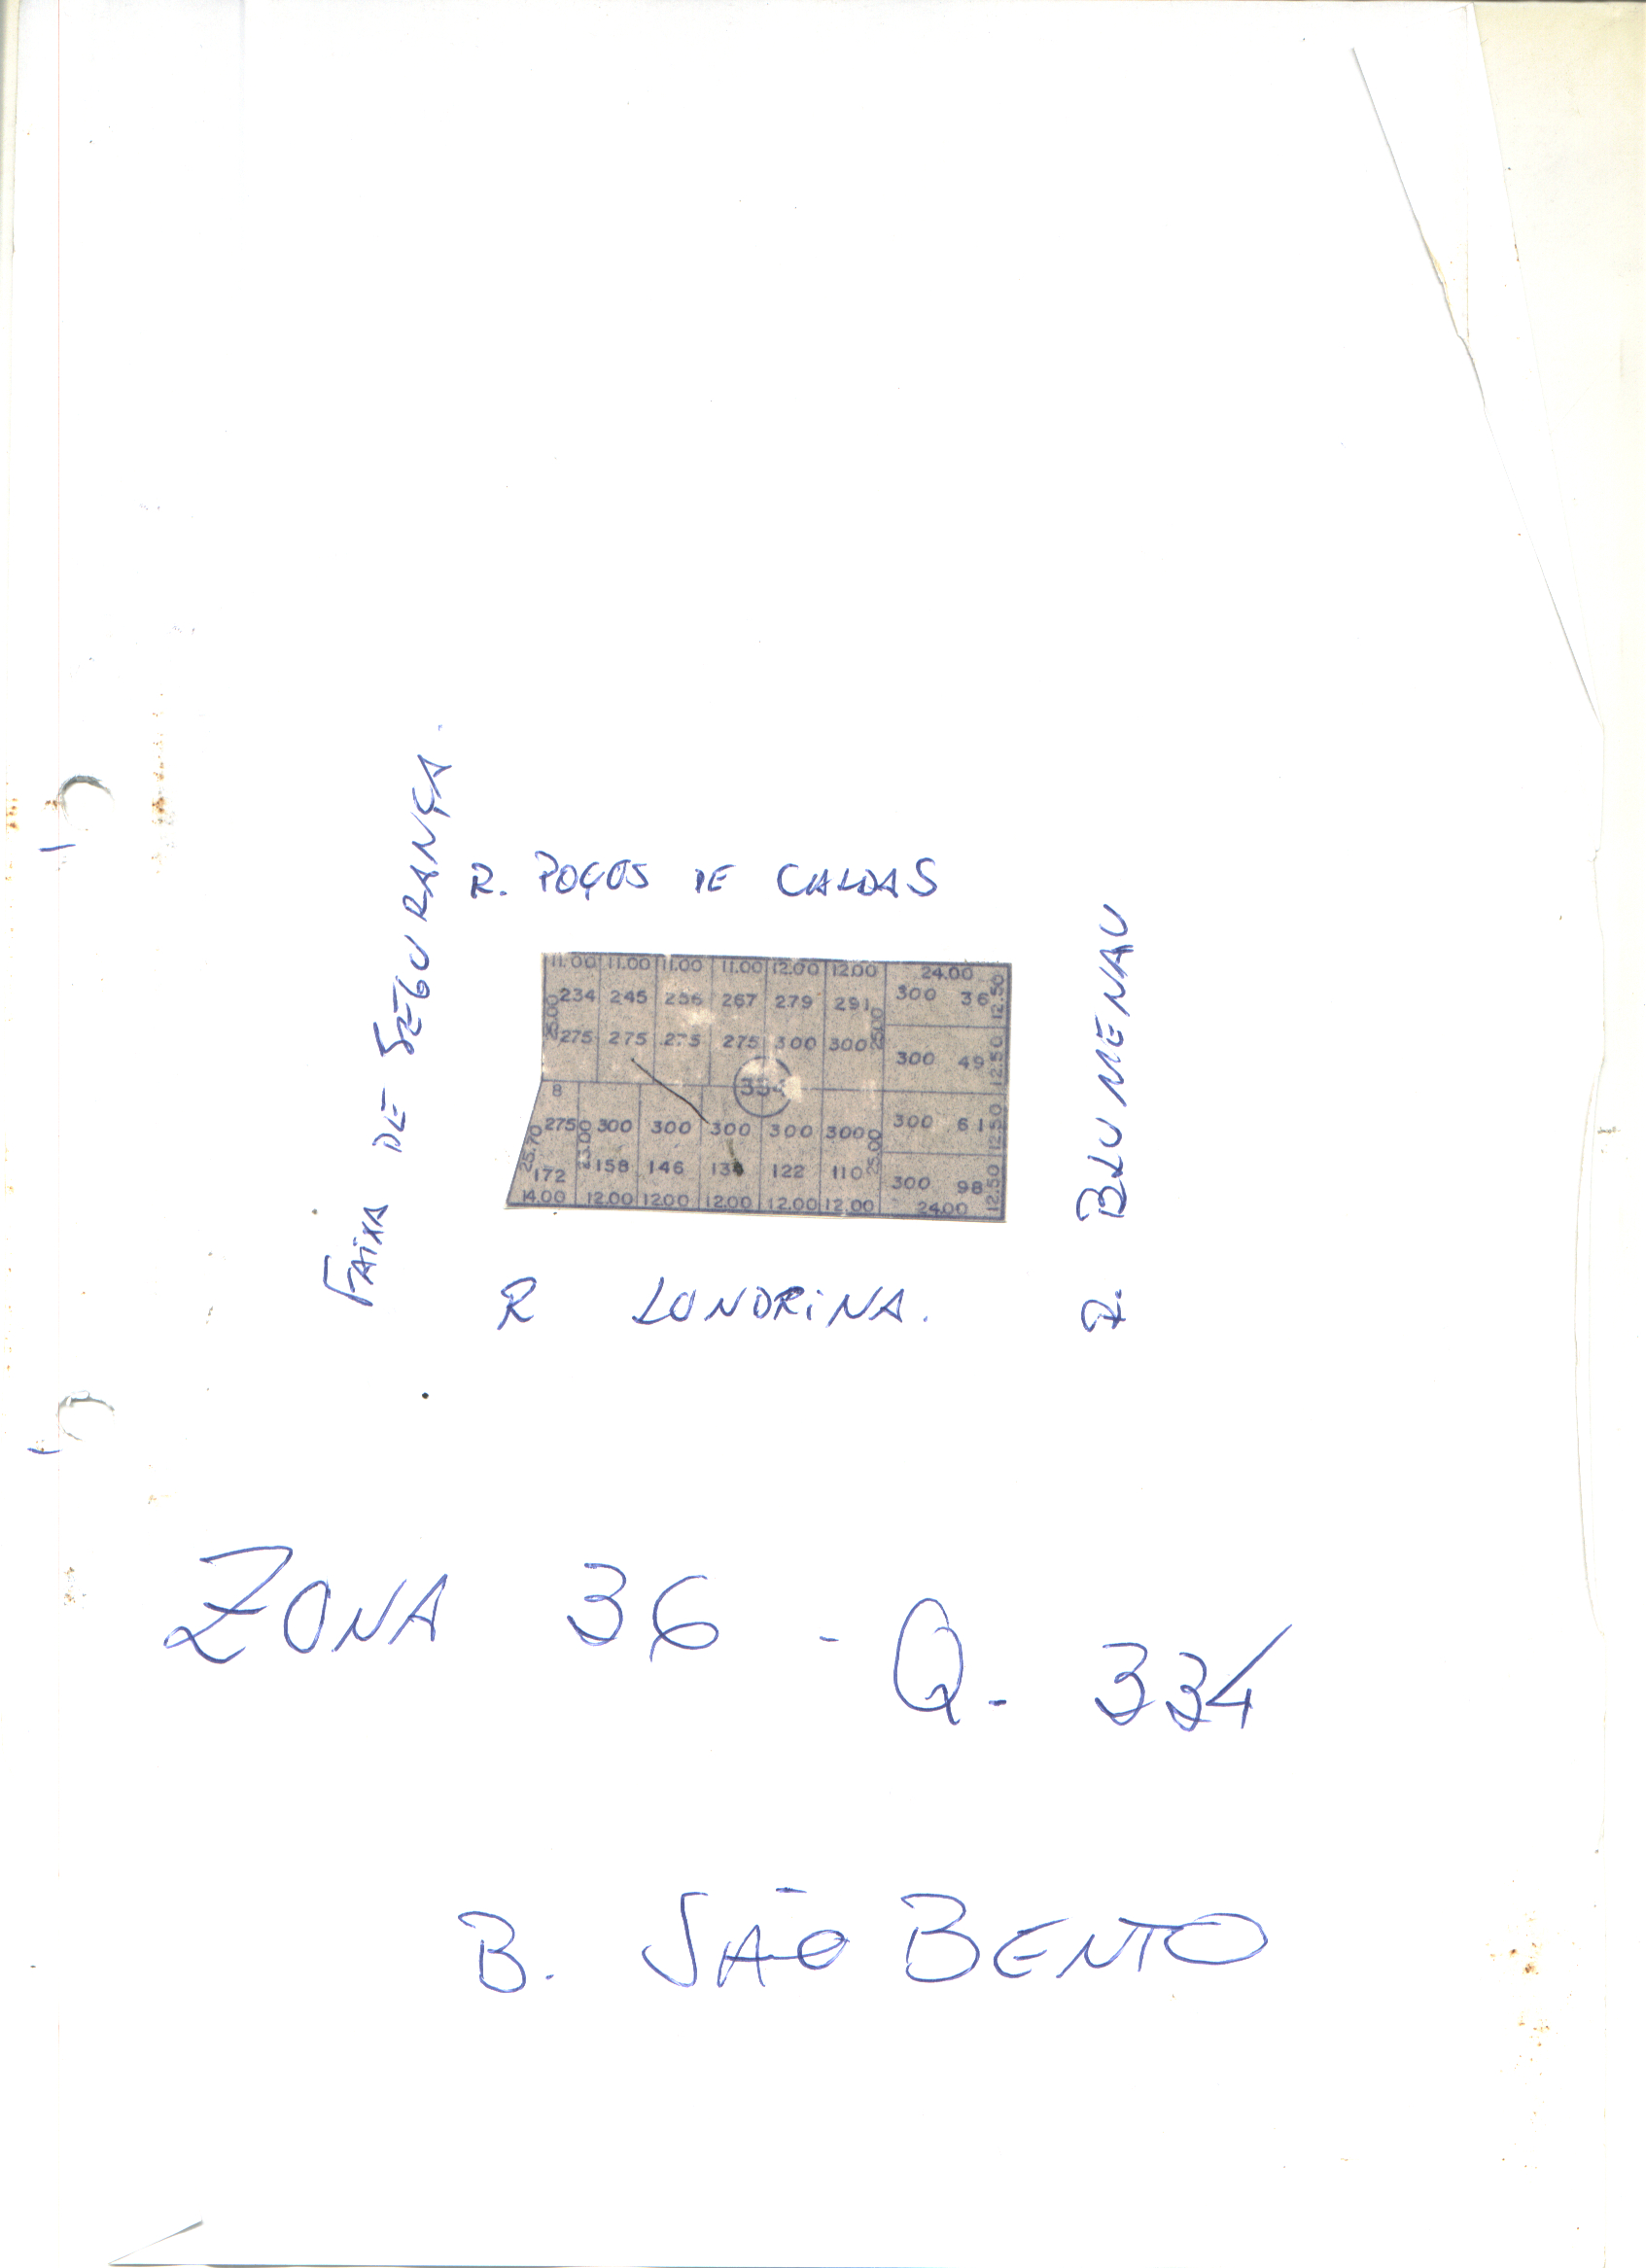 FAIXA DE SEGURANÇA.
R. POÇOS DE CALDAS
R. BLUMENAU
11.00 11.00 11.00 11.00 12.00 12.00 24.00
234 245 256 267 279 291 300 36 12.50
25.00 275 275 275 275 300 300 25.00 300 49 12.50
334
8
275 300 300 300 300 300 300 61 12.50
25.70 23.00 25.00
172 158 146 134 122 110 300 98 12.50
14.00 12.00 12.00 12.00 12.00 12.00 24.00
R LONDRINA.
ZONA 36 - Q. 334
B. SÃO BENTO